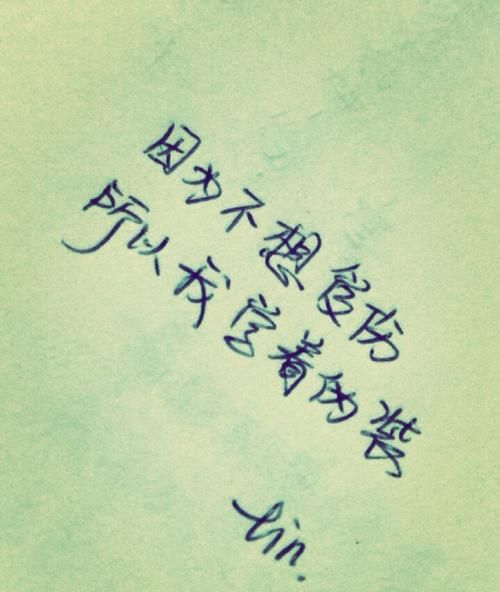 因为不想受伤
所以我学着伪装
lin.